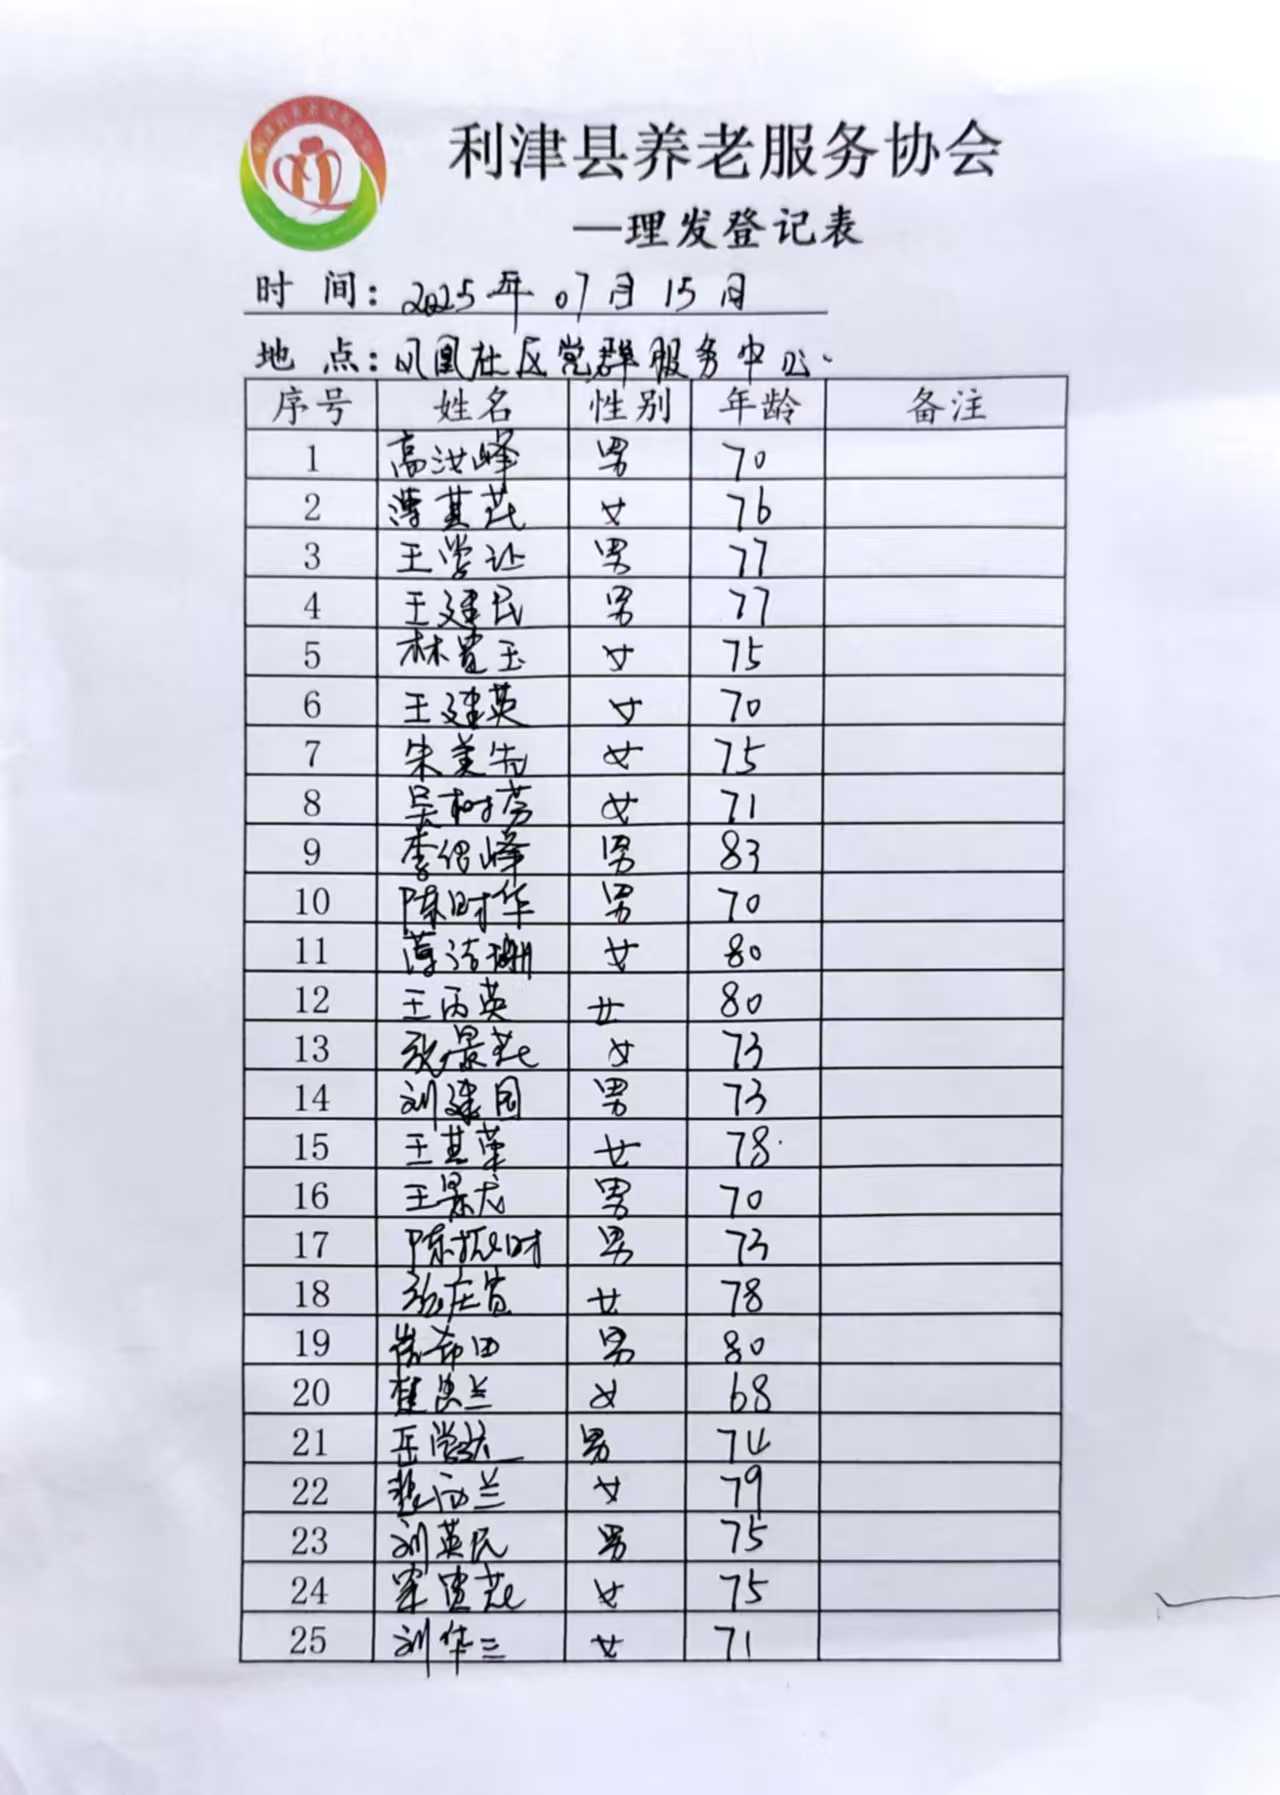 利津县养老服务协会
—理发登记表
时 间：2025年07月15日
地 点：凤凰社区党群服务中心.
序号 姓名 性别 年龄 备注
1 高洪峰 男 70
2 薄其花 女 76
3 王学让 男 77
4 王建民 男 77
5 林 玉 女 75
6 王建英 女 70
7 朱美 女 75
8 吴树芳 女 71
9 李绍峰 男 83
10 陈时华 男 70
11 薄洁珊 女 80
12 王丙英 女 80
13 张景花 女 73
14 刘建国 男 73
15 王其荣 女 78
16 王景龙 男 70
17 陈振时 男 73
18 张 女 78
19 崔希田 男 80
20 兰 女 68
21 岳学 男 74
22 兰 女 79
23 刘英民 男 75
24 花 女 75
25 刘华三 女 71